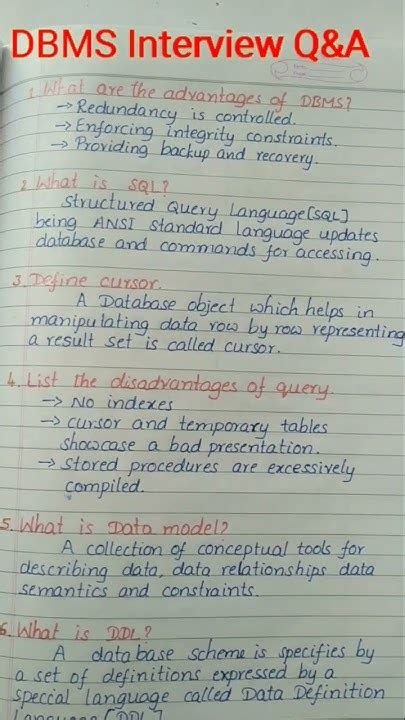 DBMS Interview Q&A
1. What are the advantages of DBMS?
→ Redundancy is controlled.
→ Enforcing integrity constraints.
→ Providing backup and recovery.
2. What is SQL?
Structured Query Language [SQL]
being ANSI standard language updates
database and commands for accessing.
3. Define cursor.
A Database object which helps in
manipulating data row by row representing
a result set is called cursor.
4. List the disadvantages of query.
→ No indexes
→ cursor and temporary tables
showcase a bad presentation.
→ Stored procedures are excessively
compiled.
5. What is Data model?
A collection of conceptual tools for
describing data, data relationships data
semantics and constraints.
6. What is DDL?
A data base scheme is specifies by
a set of definitions expressed by a
special language called Data Definition
Language [DDL]